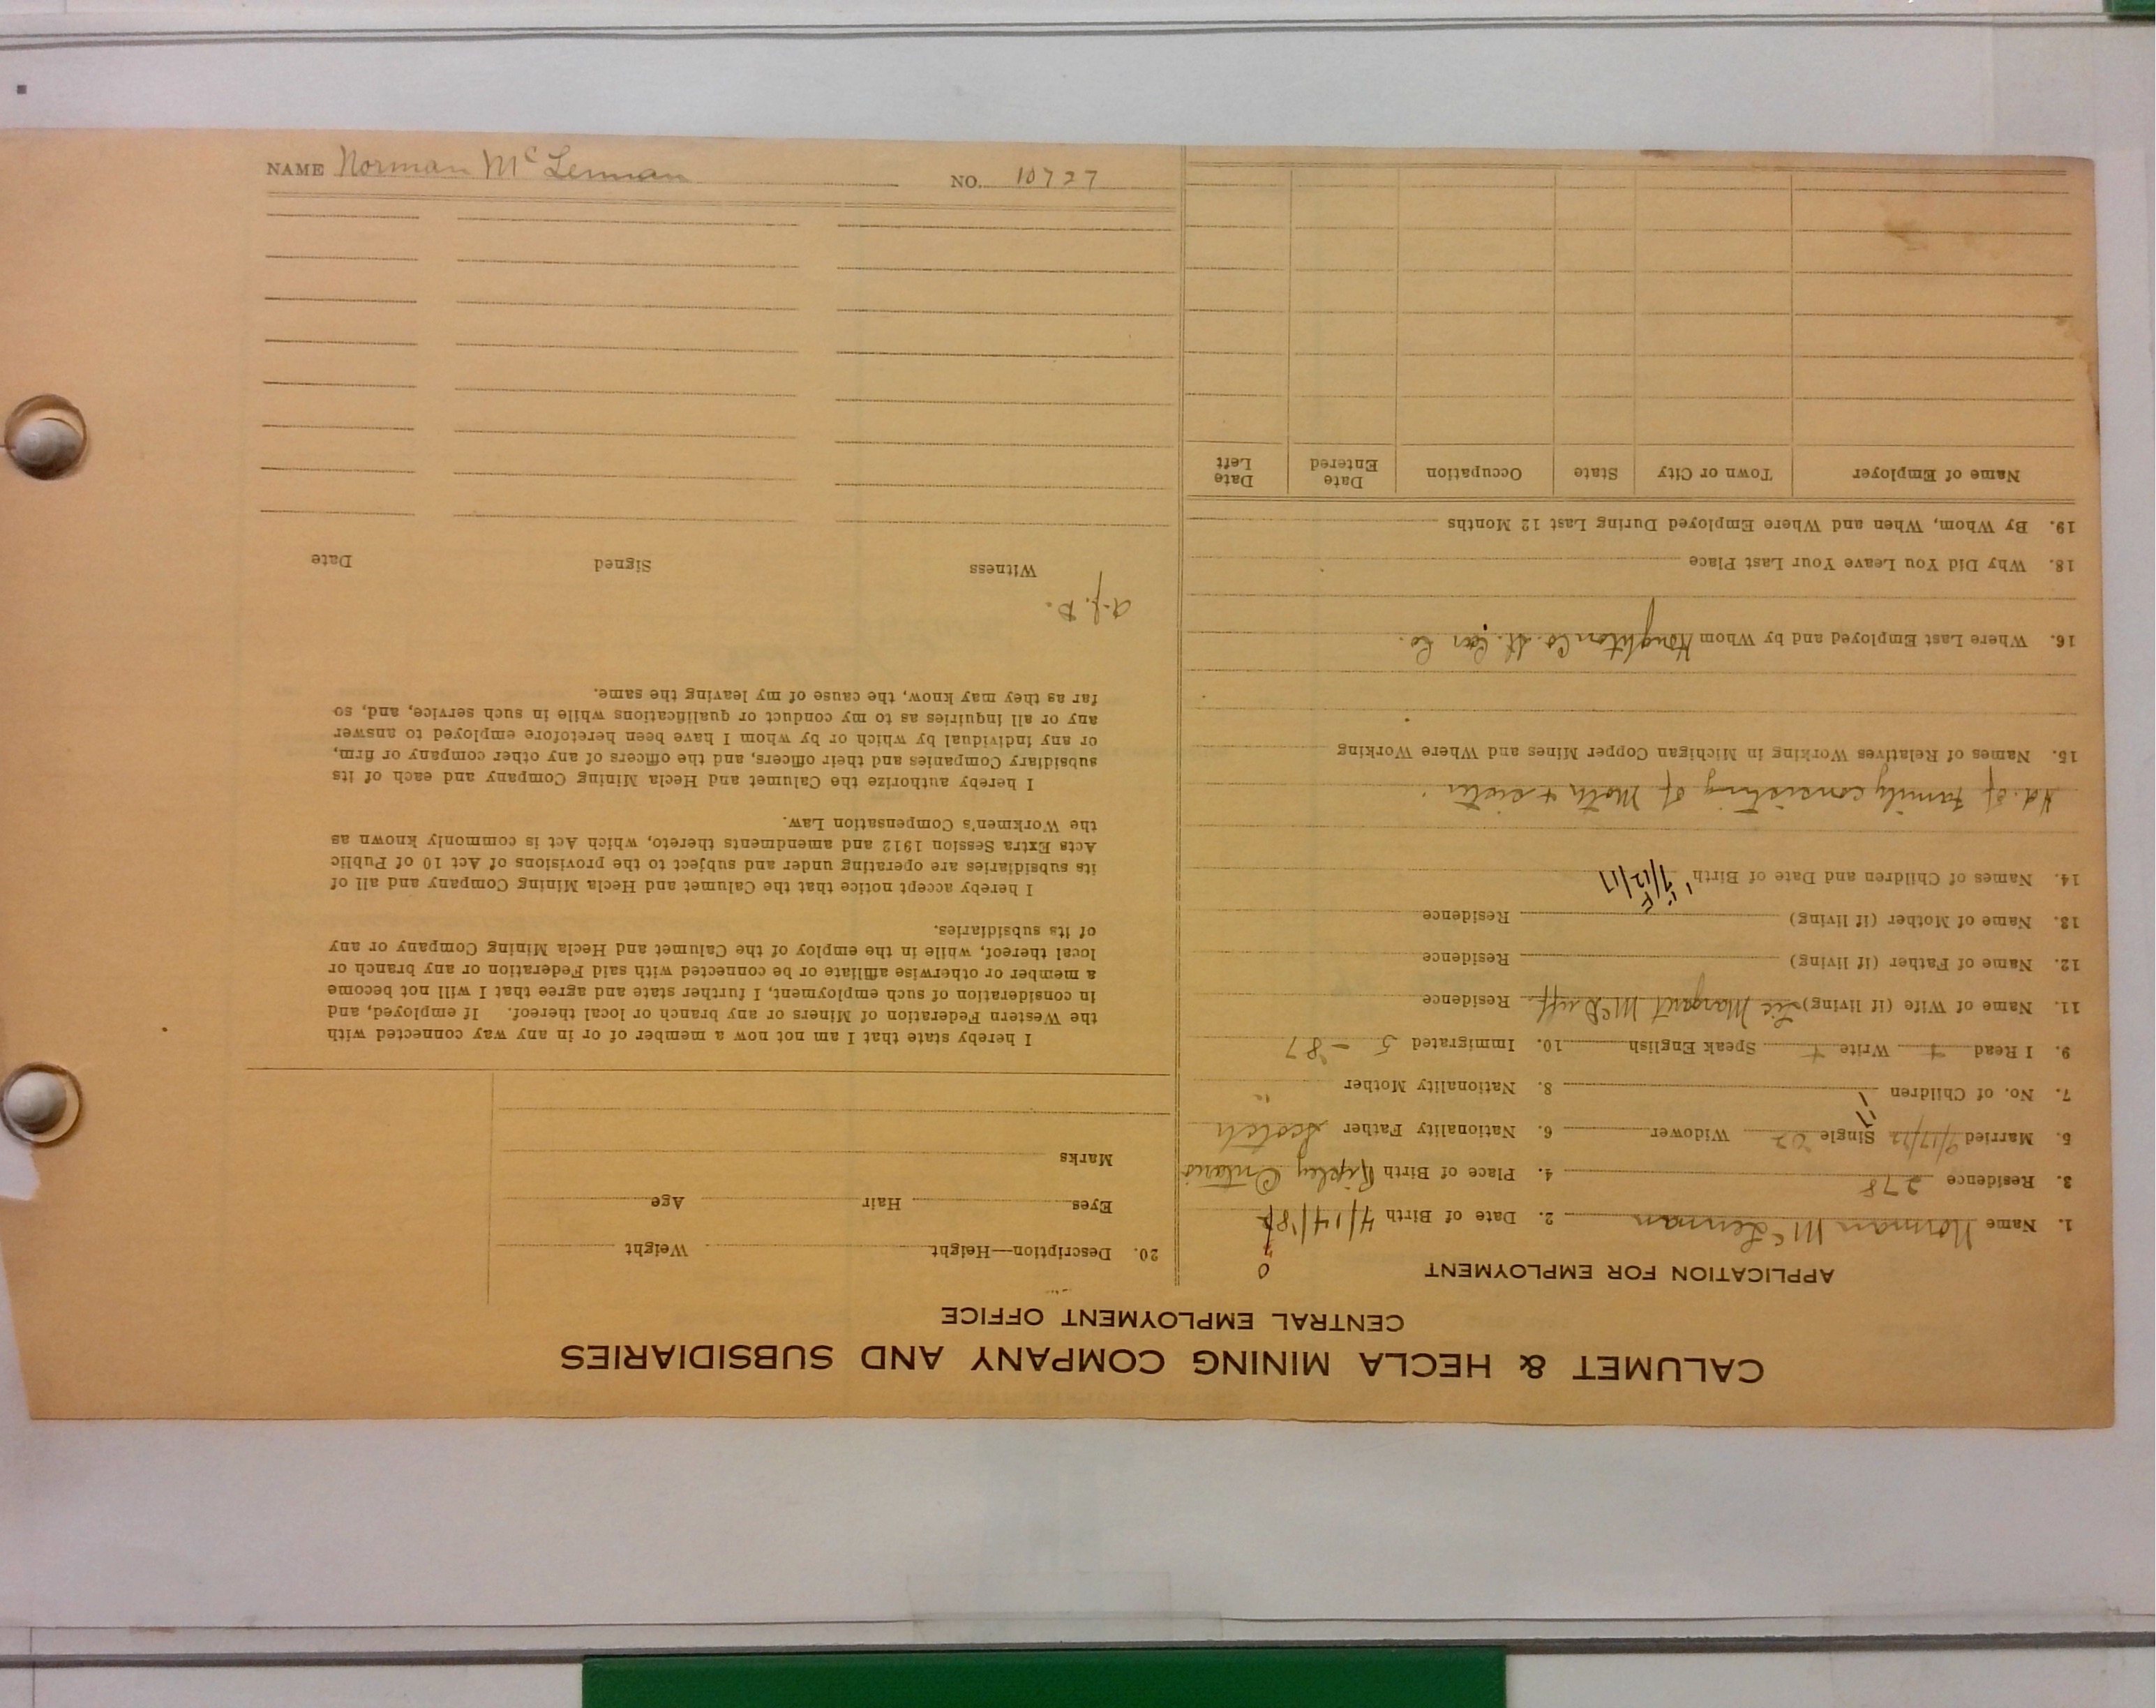 CALUMET & HECLA MINING COMPANY AND SUBSIDIARIES
CENTRAL EMPLOYMENT OFFICE
APPLICATION FOR EMPLOYMENT
1. Name Norman Mc Lennan 2. Date of Birth 4/14/8
3. Residence 278 4. Place of Birth Ripley Ontario
5. Married Single Widower 6. Nationality Father Scotch
7. No. of Children 1 8. Nationality Mother "
9. I Read + Write + Speak English 10. Immigrated 5 - 87
11. Name of Wife (if living) Margaret McDuff Residence
12. Name of Father (if living) Residence
13. Name of Mother (if living) Residence
14. Names of Children and Date of Birth 7/12/17
Hd. of family consisting of Moth + sister
15. Names of Relatives Working in Michigan Copper Mines and Where Working
16. Where Last Employed and by Whom Houghton Co. St. Car Co.
18. Why Did You Leave Your Last Place
19. By Whom, When and Where Employed During Last 12 Months
Name of Employer Town or City State Occupation Date Entered Date Left
20. Description—Height Weight
Eyes Hair Age
Marks
I hereby state that I am not now a member of or in any way connected with
the Western Federation of Miners or any branch or local thereof. If employed, and
in consideration of such employment, I further state and agree that I will not become
a member or otherwise affiliate or be connected with said Federation or any branch or
local thereof, while in the employ of the Calumet and Hecla Mining Company or any
of its subsidiaries.
I hereby accept notice that the Calumet and Hecla Mining Company and all of
its subsidiaries are operating under and subject to the provisions of Act 10 of Public
Acts Extra Session 1912 and amendments thereto, which Act is commonly known as
the Workmen's Compensation Law.
I hereby authorize the Calumet and Hecla Mining Company and each of its
subsidiary Companies and their officers, and the officers of any other company or firm,
or any individual by which or by whom I have been heretofore employed to answer
any or all inquiries as to my conduct or qualifications while in such service, and, so
far as they may know, the cause of my leaving the same.
Witness Signed Date
NAME Norman Mc Lennan NO. 10727